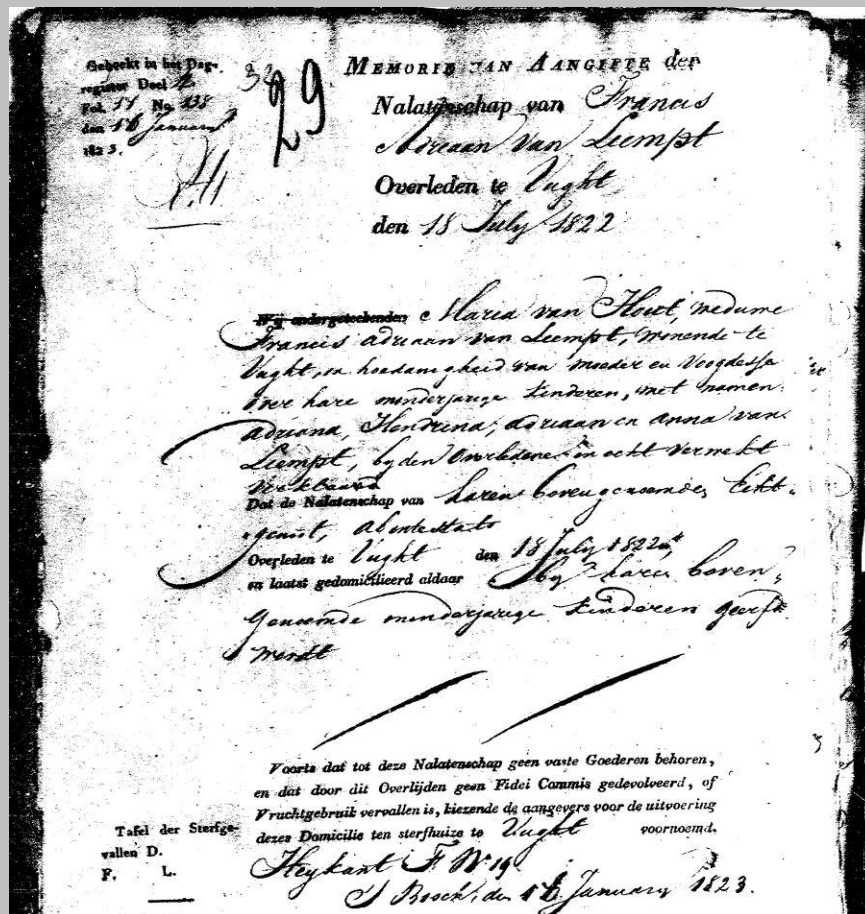 Geboekt in het Dag-
register Deel 2
Fol. 51 No. 138
den 16 January
1823.
29
MEMORIE VAN AANGIFTE der
Nalatenschap van Francis
Adriaan Van Liempt
Overleden te Vught
den 18 July 1822
Wij ondergeteekenden Maria van Hout, weduwe
Francis adriaan van Liempt, wonende te
Vught, in hoedanigheid van moeder en Voogdesse
over hare minderjarige kinderen, met namen
adriana, Hendrina, adriaan en anna van
Liempt, by den Overledene in echt verwekt
verklaard
Dat de Nalatenschap van haren bovengenoemden Echt-
genoot, abintestato
Overleden te Vught den 18 July 1822
en laatst gedomicilieerd aldaar by hare boven-
genoemde minderjarige kinderen geerft
wordt
Voorts dat tot deze Nalatenschap geen vaste Goederen behoren,
en dat door dit Overlijden geen Fidei Commis gedevolveerd, of
Vruchtgebruik vervallen is, kiezende de aangevers voor de uitvoering
dezes Domicilie ten sterfhuize te Vught voornoemd.
Tafel der Sterfge-
vallen D.
F. L.
Heykant F No 19
S Bosch, den 16 January 1823.